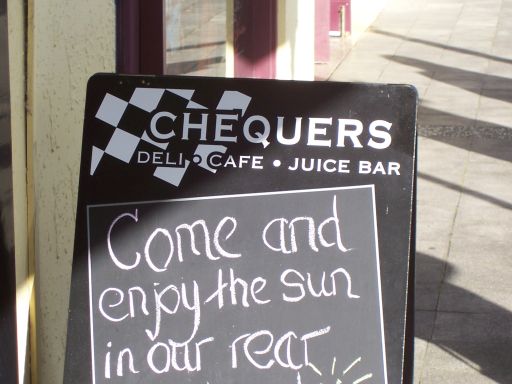 CHEQUERS
DELI • CAFE • JUICE BAR
Come and
enjoy the sun
in our rear